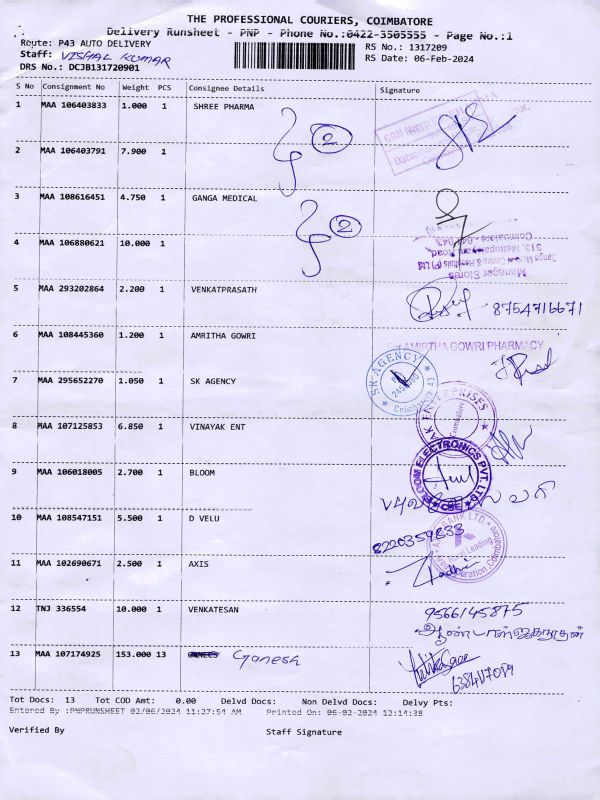 THE PROFESSIONAL COURIERS, COIMBATORE
Delivery Runsheet - PNP - Phone No.:0422-3505555 - Page No.:1
Route: P43 AUTO DELIVERY
RS No.: 1317209
Staff: VISHAL KUMAR
RS Date: 06-Feb-2024
DRS No.: DCJB131720901
S No Consignment No Weight PCS Consignee Details Signature
1 MAA 106403833 1.000 1 SHREE PHARMA
2
2 MAA 106403791 7.900 1
3 MAA 108616451 4.750 1 GANGA MEDICAL
2
4 MAA 106880621 10.000 1
Manager Stores
5 MAA 293202864 2.200 1 VENKATPRASATH
8754716671
6 MAA 108445360 1.200 1 AMRITHA GOWRI
AMIRTHA GOWRI PHARMACY
7 MAA 295652270 1.050 1 SK AGENCY
SK AGENCY
Coimbatore
8 MAA 107125853 6.850 1 VINAYAK ENT
ENTERPRISES
9 MAA 106018005 2.700 1 BLOOM
BLOOM ELECTRONICS PVT. LTD.
CBE
10 MAA 108547151 5.500 1 D VELU
8220359833
BANK LTD
11 MAA 102690671 2.500 1 AXIS
12 TNJ 336554 10.000 1 VENKATESAN
9566145875
13 MAA 107174925 153.000 13 Ganesh
6384117089
Tot Docs: 13 Tot COD Amt: 0.00 Delvd Docs: Non Delvd Docs: Delvy Pts:
Entered By :PNPRUNSHEET 02/06/2024 11:27:54 AM Printed On: 06-02-2024 12:14:38
Verified By Staff Signature